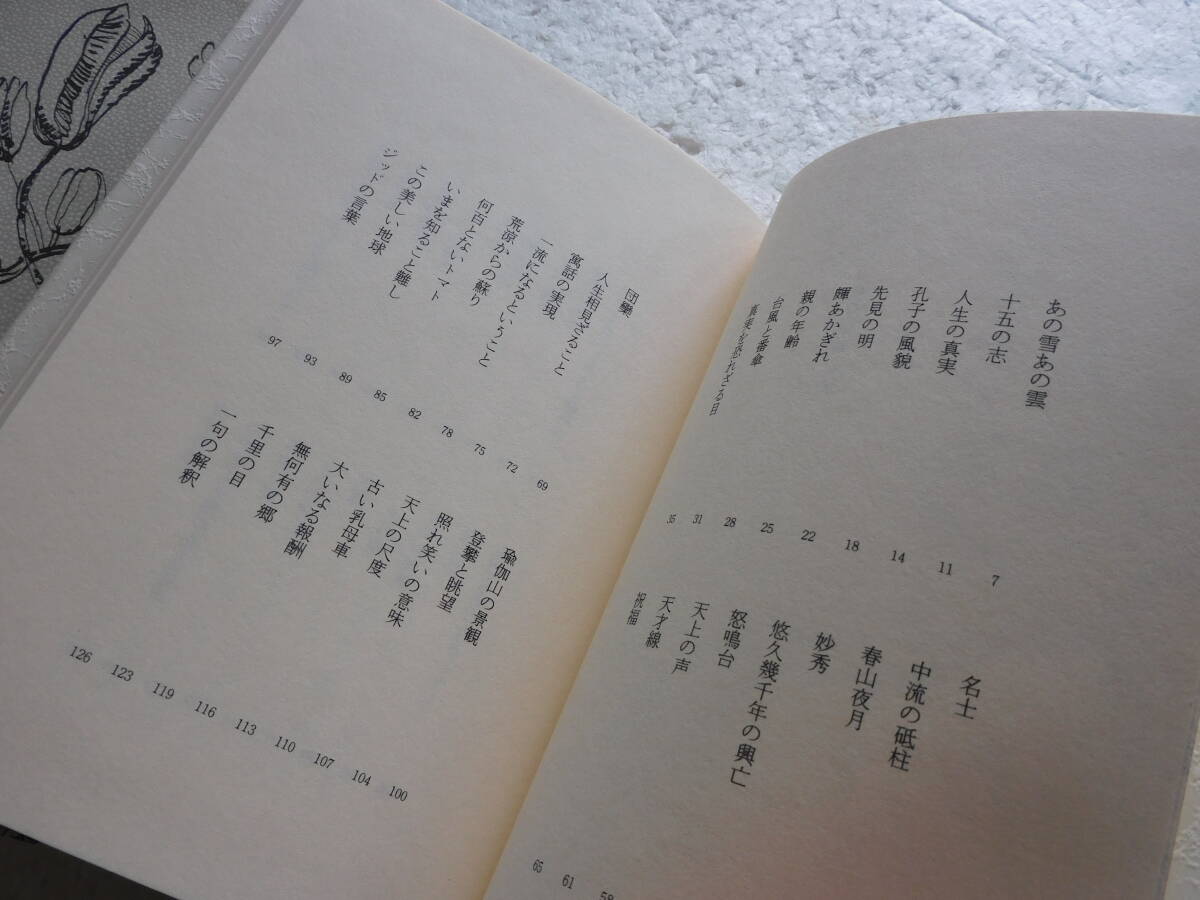 あの雪あの雲 7
十五の志 11
人生の真実 14
孔子の風貌 18
先見の明 22
あかぎれ 25
親の年齢 28
台風と番傘 31
を恐れざる日 35
名士
中流の砥柱
春山夜月
妙秀
悠久幾千年の興亡
怒鳴台
天上の声 58
天才線 61
祝福 65
団欒 69
人生相見ざること 72
寓話の実現 75
一流になるということ 78
荒涼からの蘇り 82
何百とないトマト 85
いまを知ること難し 89
この美しい地球 93
ジッドの言葉 97
瑜伽山の景観 100
登攀と眺望 104
照れ笑いの意味 107
天上の尺度 110
古い乳母車 113
大いなる報酬 116
無何有の郷 119
千里の目 123
一句の解釈 126